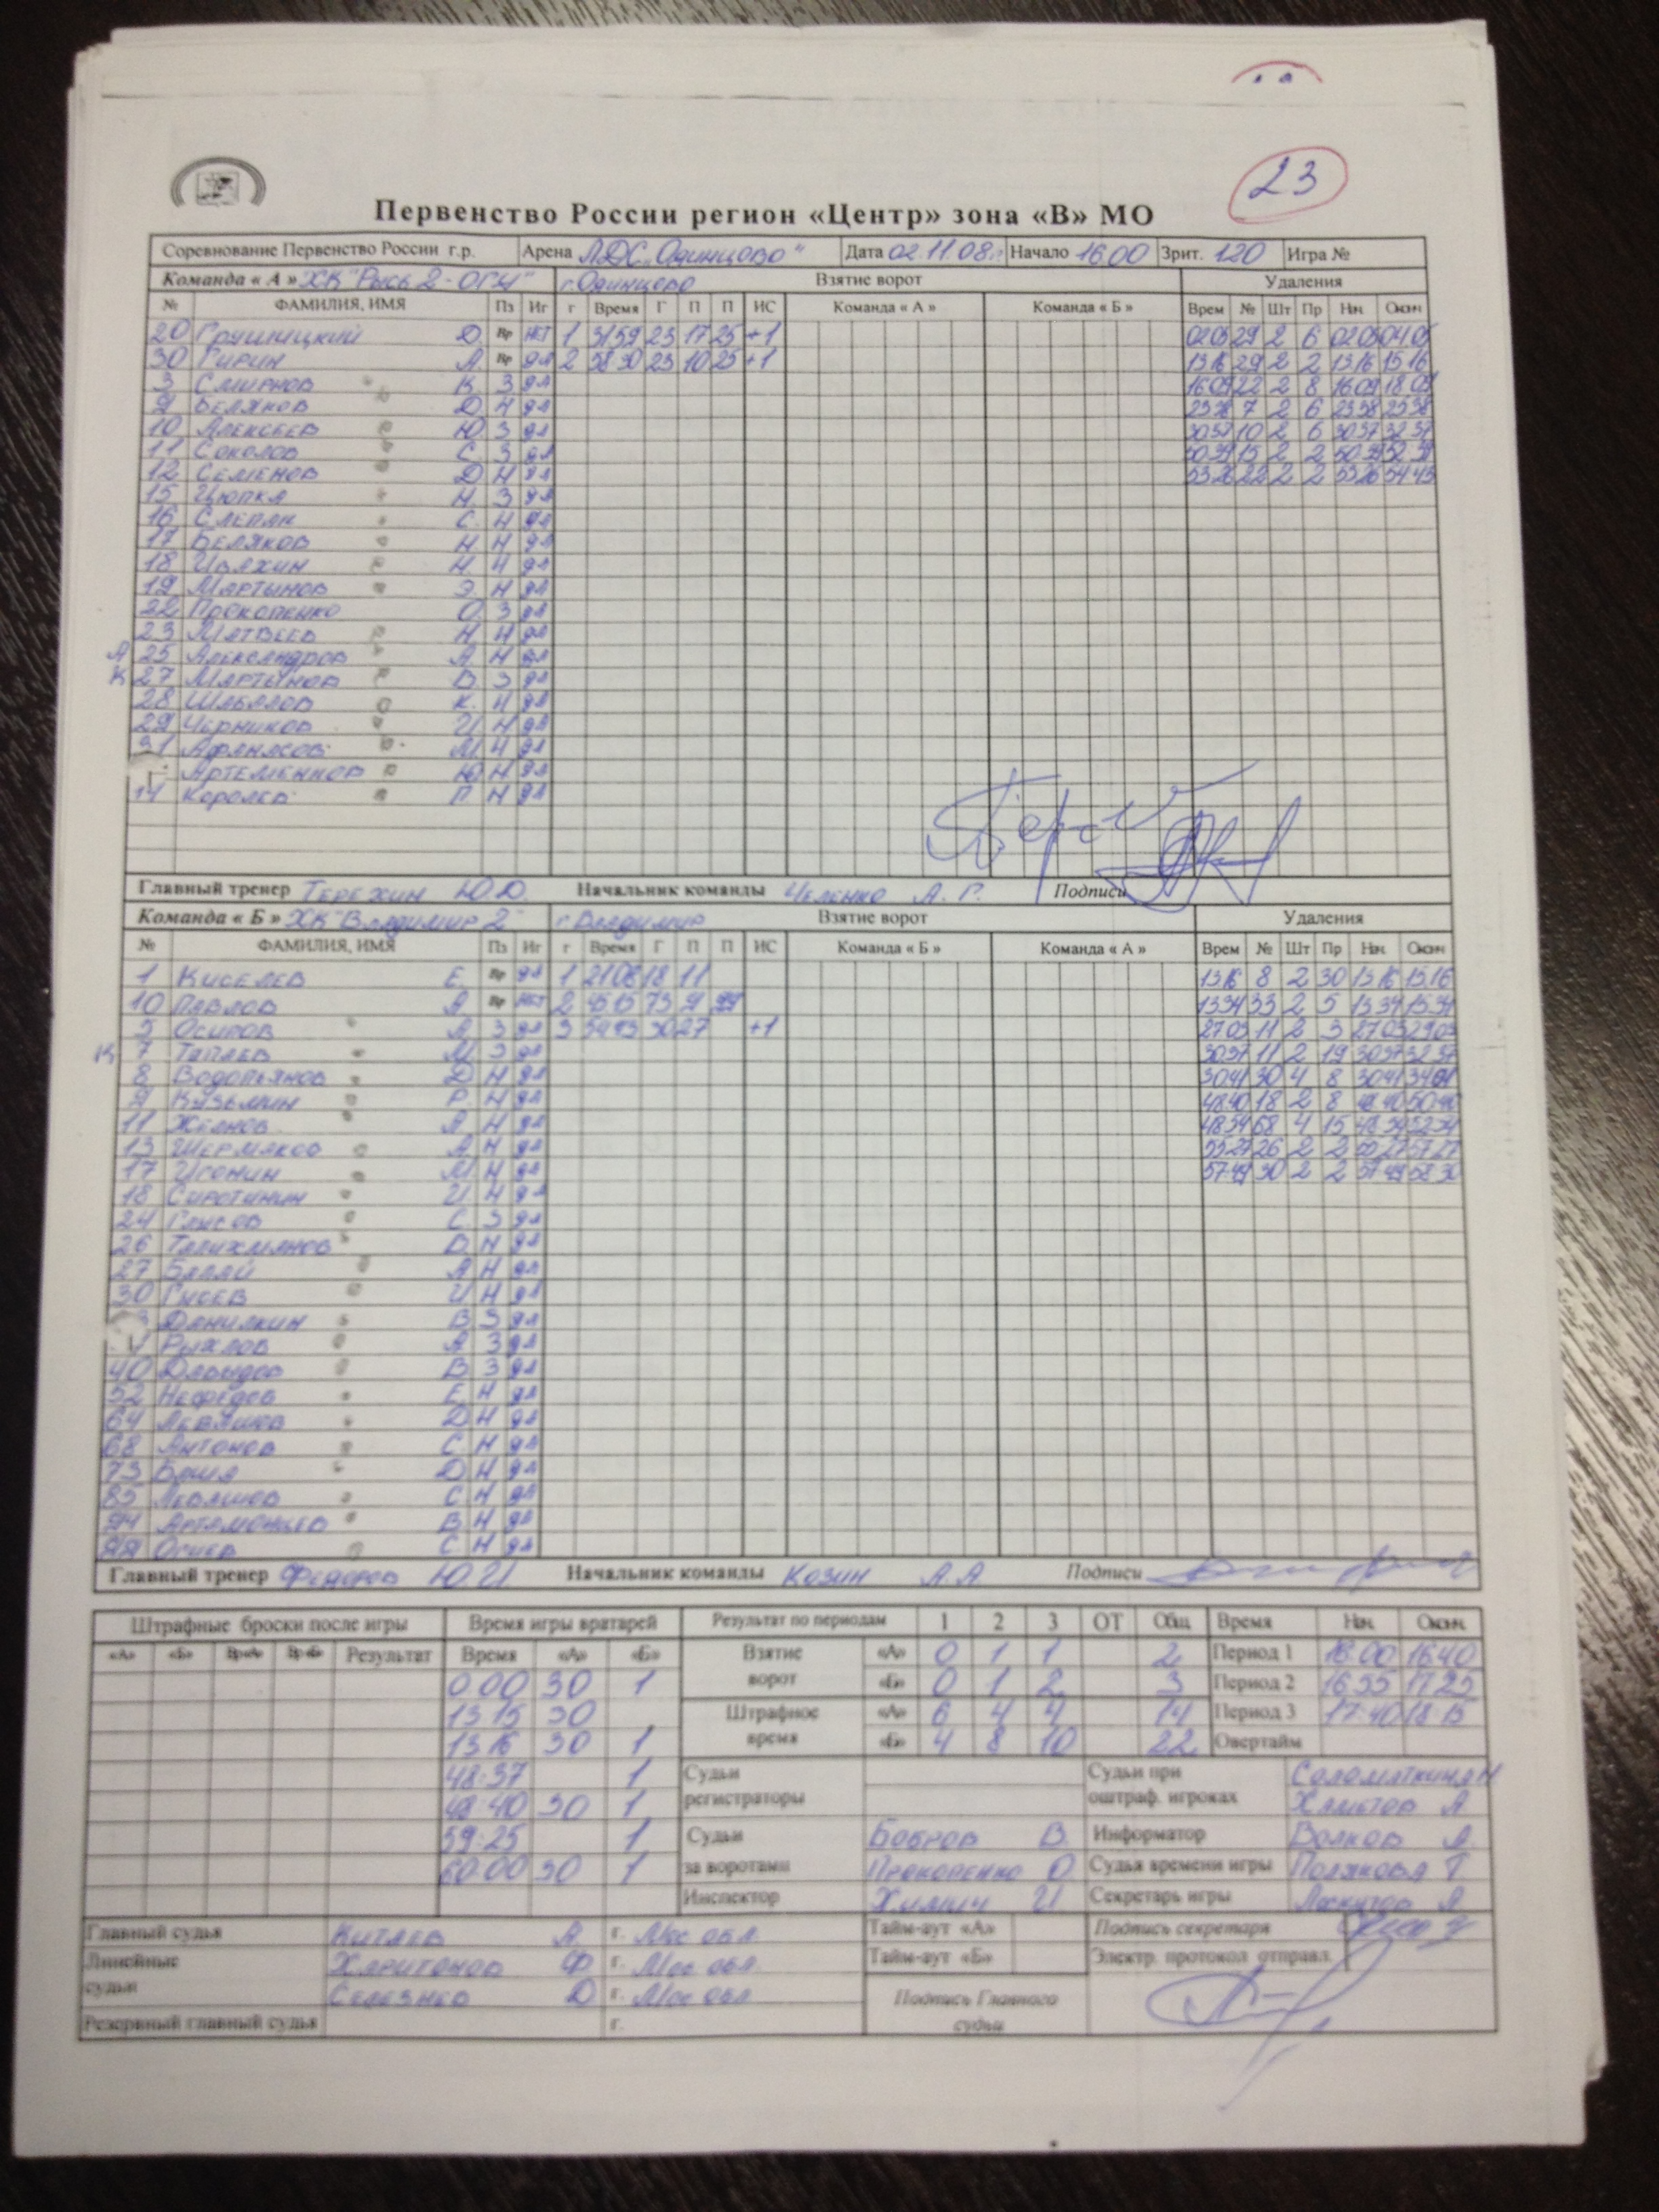 23
Первенство России регион «Центр» зона «В» МО
Соревнование Первенство России г.р. Арена ЛДС "Одинцово" Дата 02.11.08г. Начало 16 00 Зрит. 120 Игра №
Команда « А » ХК "Рысь 2 - г.Одинцово Взятие ворот Удаления
№ ФАМИЛИЯ, ИМЯ Пз Иг г Время Г П П ИС Команда « А » Команда « Б » Врем № Шт Пр Нач Оконч
20 Д. Вр нет 1 31 59 23 17 25 +1 02 05 29 2 6 02 05 04 05
30 Гирин А. Вр да 2 58 30 23 10 25 +1 13 16 29 2 2 13 16 15 16
3 Смирнов К 3 да 16 09 22 2 8 16 09 18 09
9 Беляков Д Н да 23 38 7 2 6 23 38 25 38
10 Алексеев Ю 3 да 30 37 10 2 6 30 37 32 37
11 Соколов С 3 да 50 39 15 2 2 50 39 52 39
12 Семенов Д Н да 53 26 22 2 2 53 26 54 43
15 Цюпка Н 3 да
16 Слепак С. Н да
17 Беляков Н Н да
18 Ивахин Н Н да
19 Мартынов Э Н да
22 Прокопенко О 3 да
23 Матвеев Н Н да
А 25 Александров А Н да
К 27 Мартынов В 3 да
28 Шабалов К. Н да
29 Черников И Н да
31 М Н да
Артеменков Ю Н да
14 Королев П Н да
Главный тренер Терехин Ю.Д. Начальник команды Челенко А. Г. Подписи
Команда « Б » ХК "Владимир 2" г. Владимир Взятие ворот Удаления
№ ФАМИЛИЯ, ИМЯ Пз Иг г Время Г П П ИС Команда « Б » Команда « А » Врем № Шт Пр Нач Оконч
1 Киселев Е. Вр да 1 21 08 18 11 13 16 8 2 30 13 16 15 16
10 Павлов А Вр нет 2 45 15 73 9 99 13 34 33 2 5 13 34 15 34
5 Осипов А 3 да 3 54 43 30 27 +1 27 03 11 2 3 27 03 29 03
К 7 Таплев М 3 да 30 37 11 2 19 30 37 32 37
8 Водопьянов Д Н да 30 41 30 4 8 30 41 34 41
9 Кузьмин Р Н да 48 40 18 2 8 48 40 50 40
11 А Н да 48 54 68 4 15
13 Шермаков А Н да 55 27 26 2 2 55 27 57 27
17 Игонин М Н да 57 49 30 2 2 57 49 58 30
18 Сиротинин И Н да
24 С 3 да
26 Талихманов В Н да
27 А Н да
30 Гусев И Н да
Данилкин В 3 да
Рыхлов А 3 да
40 Давыдов В 3 да
52 Нефедов Е Н да
64 Левашов Д Н да
68 Антонов С Н да
73 Д Н да
85 Левашов С Н да
94 В Н да
99 С Н да
Главный тренер Федоров Ю.И. Начальник команды Козин А.А Подписи
Штрафные броски после игры Время игры вратарей Результат по периодам 1 2 3 ОТ Общ Время Нач. Оконч.
«А» «Б» Вр«А» Вр«Б» Результат Время «А» «Б» Взятие ворот «А» 0 1 1 2 Период 1 16:00 16 40
0.00 30 1 «Б» 0 1 2 3 Период 2 16 55 17 25
13 15 30 Штрафное время «А» 6 4 4 14 Период 3 17:40 18:15
13 16 30 1 «Б» 4 8 10 22 Овертайм
48:37 1 Судьи регистраторы Судьи при оштраф. игроках
48:40 30 1 Хаметов А
59:25 1 Судьи за воротами Бобров В. Информатор Волков А.
60:00 30 1 Прокопенко О Судья времени игры Полякова Т
Инспектор Химич И Секретарь игры Лоскутов А
Главный судья Китаев А. г. Мос обл. Тайм-аут «А» Подпись секретаря
Линейные судьи Харитонов Ф г. Мос обл. Тайм-аут «Б» Электр. протокол отправл.
Селезнев Д г. Мос обл Подпись Главного судьи
Резервный главный судья г.